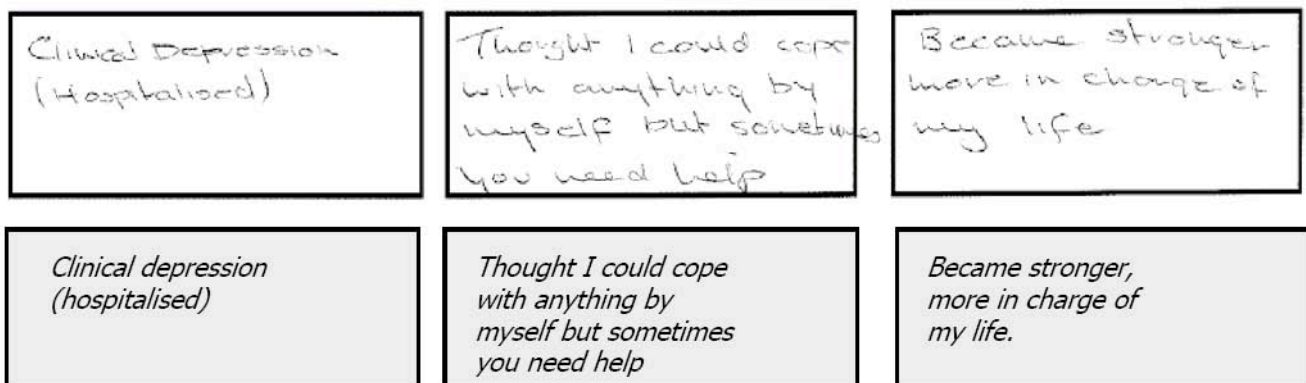 Clinical Depression
(Hospitalised)
Thought I could cope
with anything by
myself but sometimes
you need help
Became stronger
more in charge of
my life
Clinical depression
(hospitalised)
Thought I could cope
with anything by
myself but sometimes
you need help
Became stronger,
more in charge of
my life.